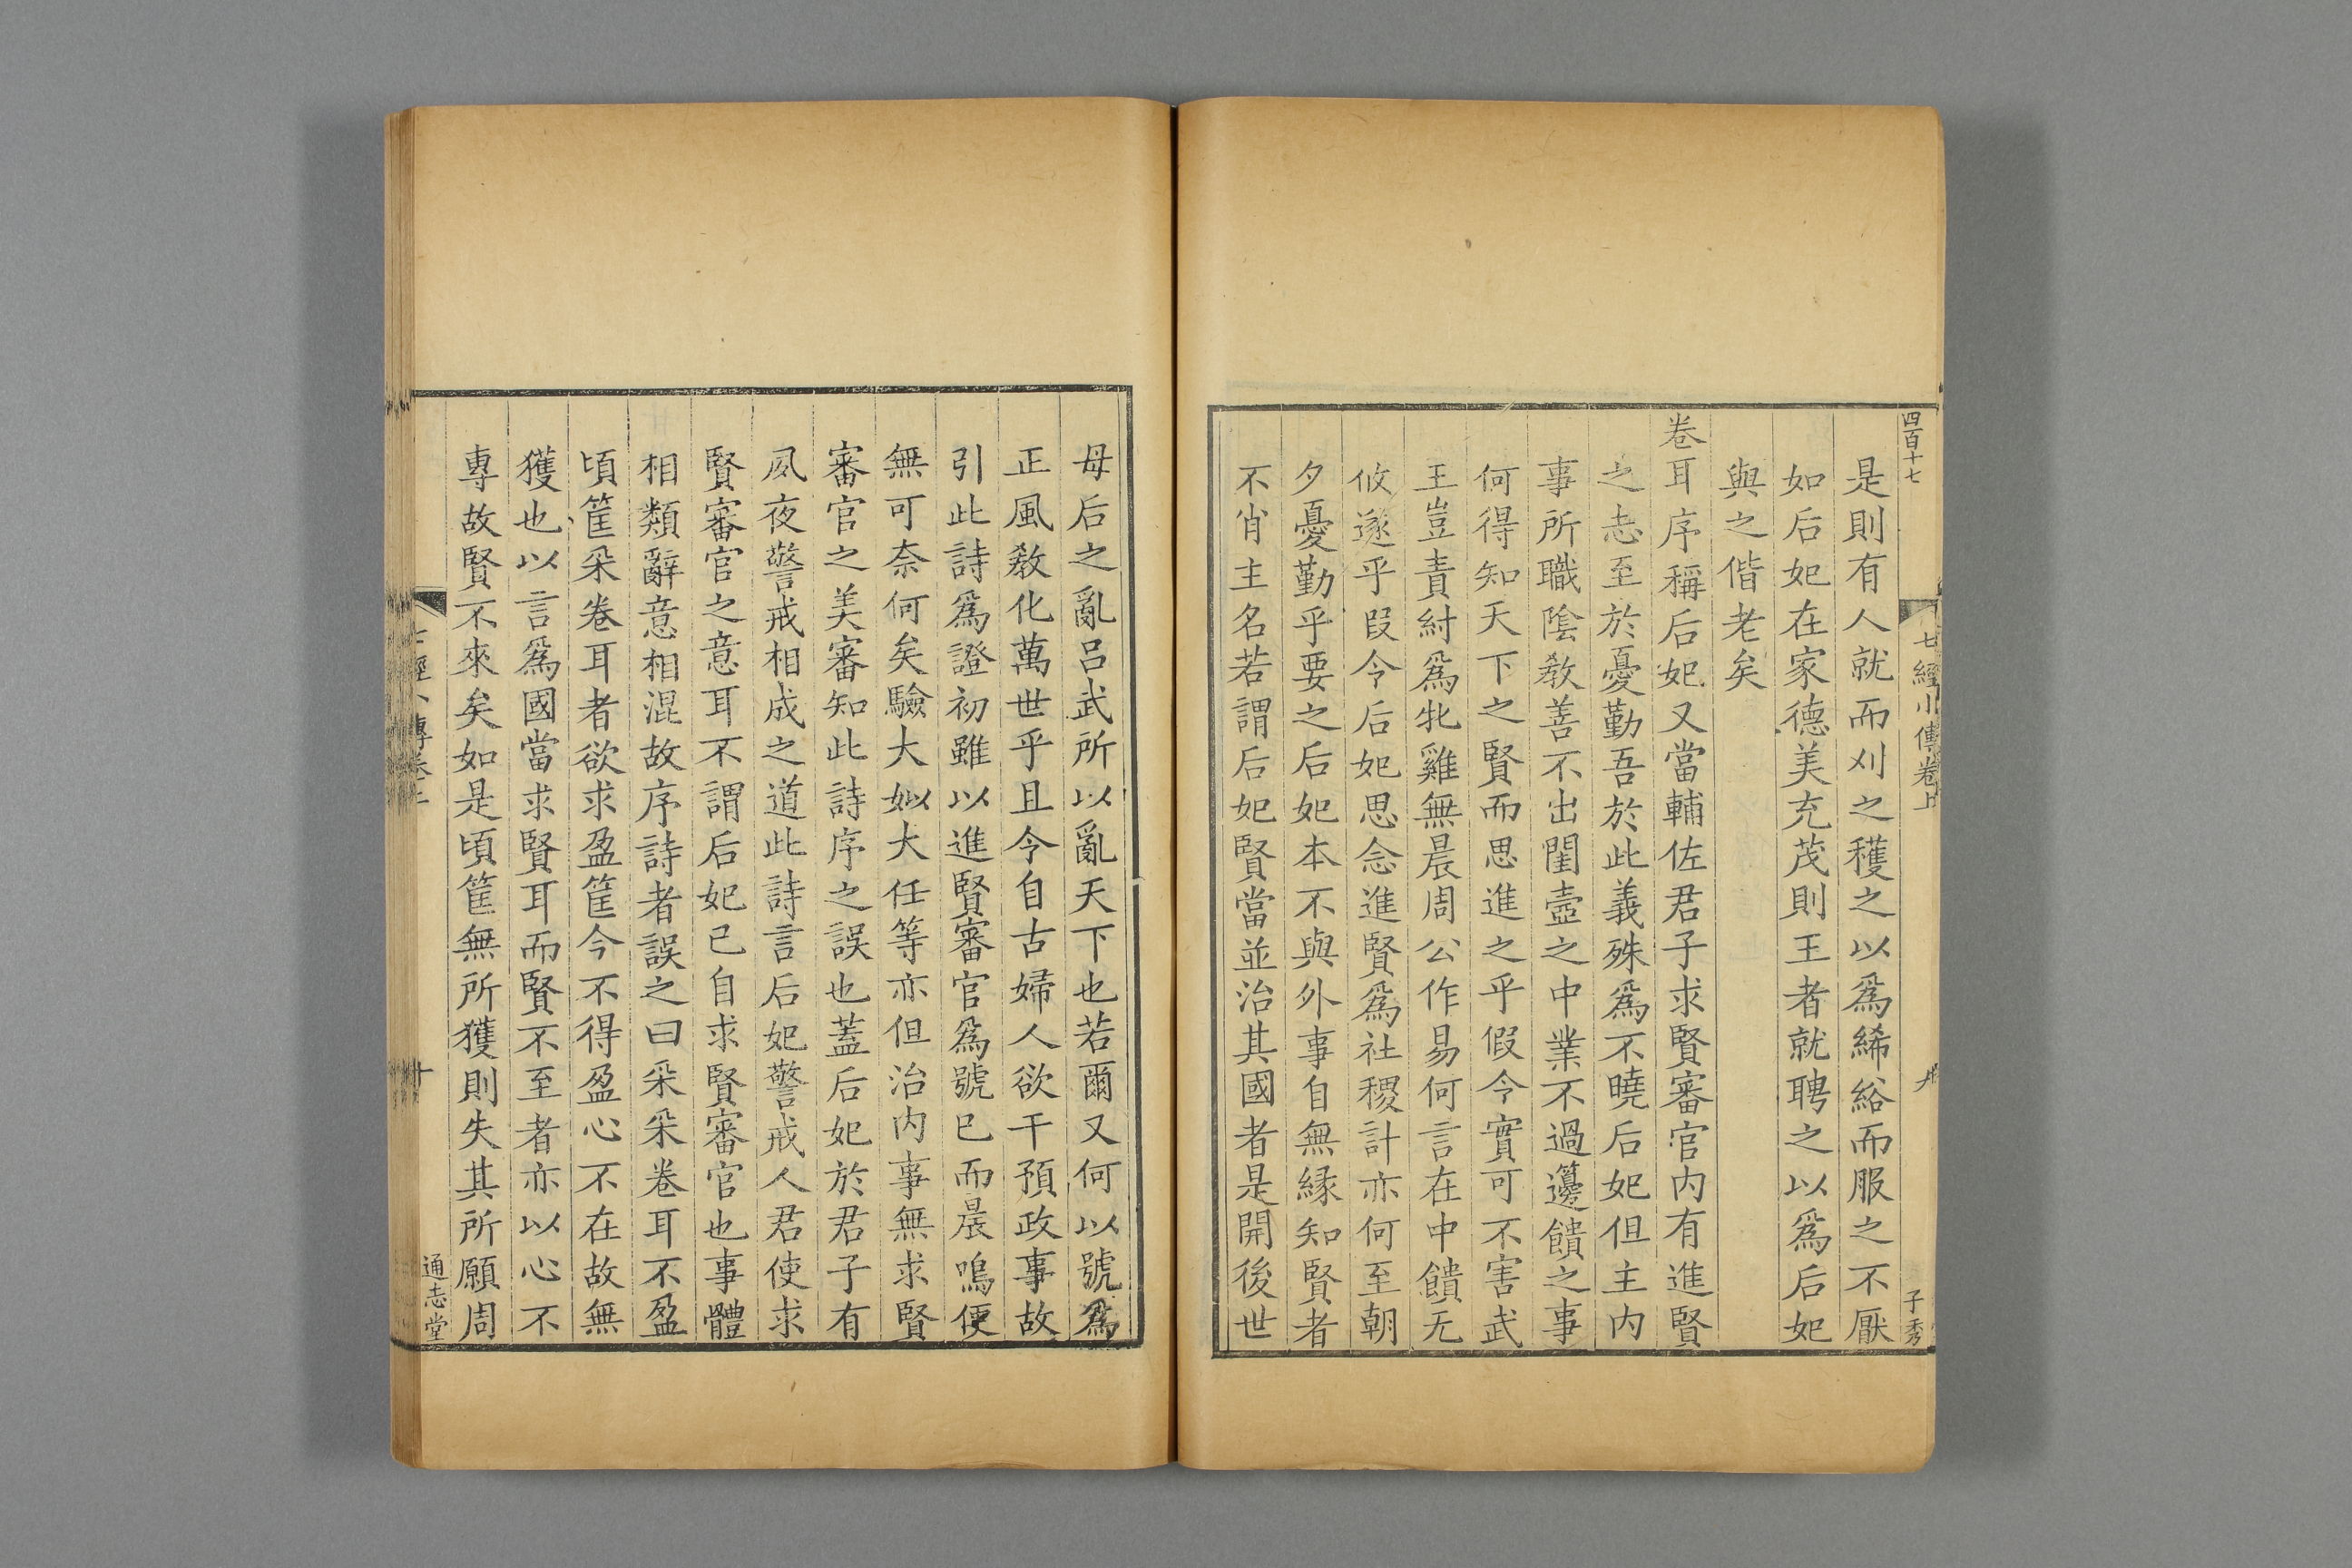 四百十七
七經小傳卷上
九
子秀
是則有人就而刈之穫之以爲絺綌而服之不厭
如后妃在家德美充茂則王者就聘之以爲后妃
與之偕老矣
卷耳序稱后妃又當輔佐君子求賢審官内有進賢
之志至於憂勤吾於此義殊爲不曉后妃但主内
事所職陰教善不出閨壼之中業不過籩饋之事
何得知天下之賢而思進之乎假令實可不害武
王豈責紂爲牝雞無晨周公作易何言在中饋无
攸遂乎叚令后妃思念進賢爲社稷計亦何至朝
夕憂勤乎要之后妃本不與外事自無縁知賢者
不肖主名若謂后妃賢當並治其國者是開後世
母后之亂呂武所以亂天下也若爾又何以號爲
正風教化萬世乎且令自古婦人欲干預政事故
引此詩爲證初雖以進賢審官爲號已而晨鳴便
無可奈何矣驗大姒大任等亦但治内事無求賢
審官之美審知此詩序之誤也蓋后妃於君子有
夙夜警戒相成之道此詩言后妃警戒人君使求
賢審官之意耳不謂后妃已自求賢審官也事體
相類辭意相混故序詩者誤之曰采采卷耳不盈
頃筐采卷耳者欲求盈筐今不得盈心不在故無
獲也以言爲國當求賢耳而賢不至者亦以心不
專故賢不來矣如是頃筐無所獲則失其所願周
十
通志堂